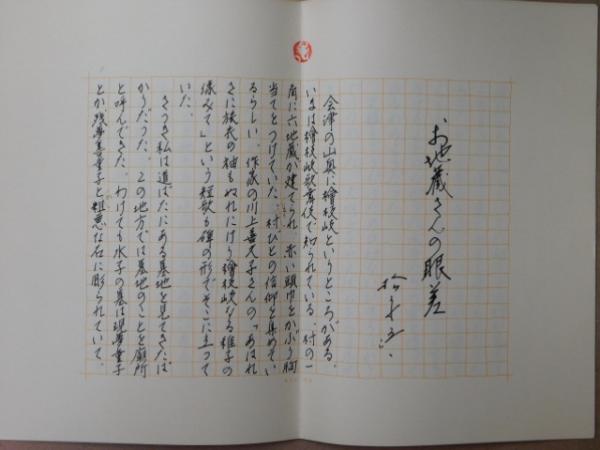 お地蔵さんの眼差
松永伍一
会津の山奥に檜枝岐というところがある。
いまは檜枝岐歌舞伎で知られている。村の一
角に六地蔵が建てられ、赤い頭巾をかぶり胸
当てをつけていた。村びとの信仰を集めてい
るらしい。作家の川上喜久子さんの「あはれ
さに旅衣の袖もぬれにけり檜枝岐なる稚子の
像みて」という短歌も碑の形でそこに立って
いた。
さっき私は道ばたにある墓地を見てきたば
かりだった。この地方では墓地のことを廟所
と呼んできた。わけても水子の墓は現夢童子
とか残夢善童子と粗悪な石に彫られていて、